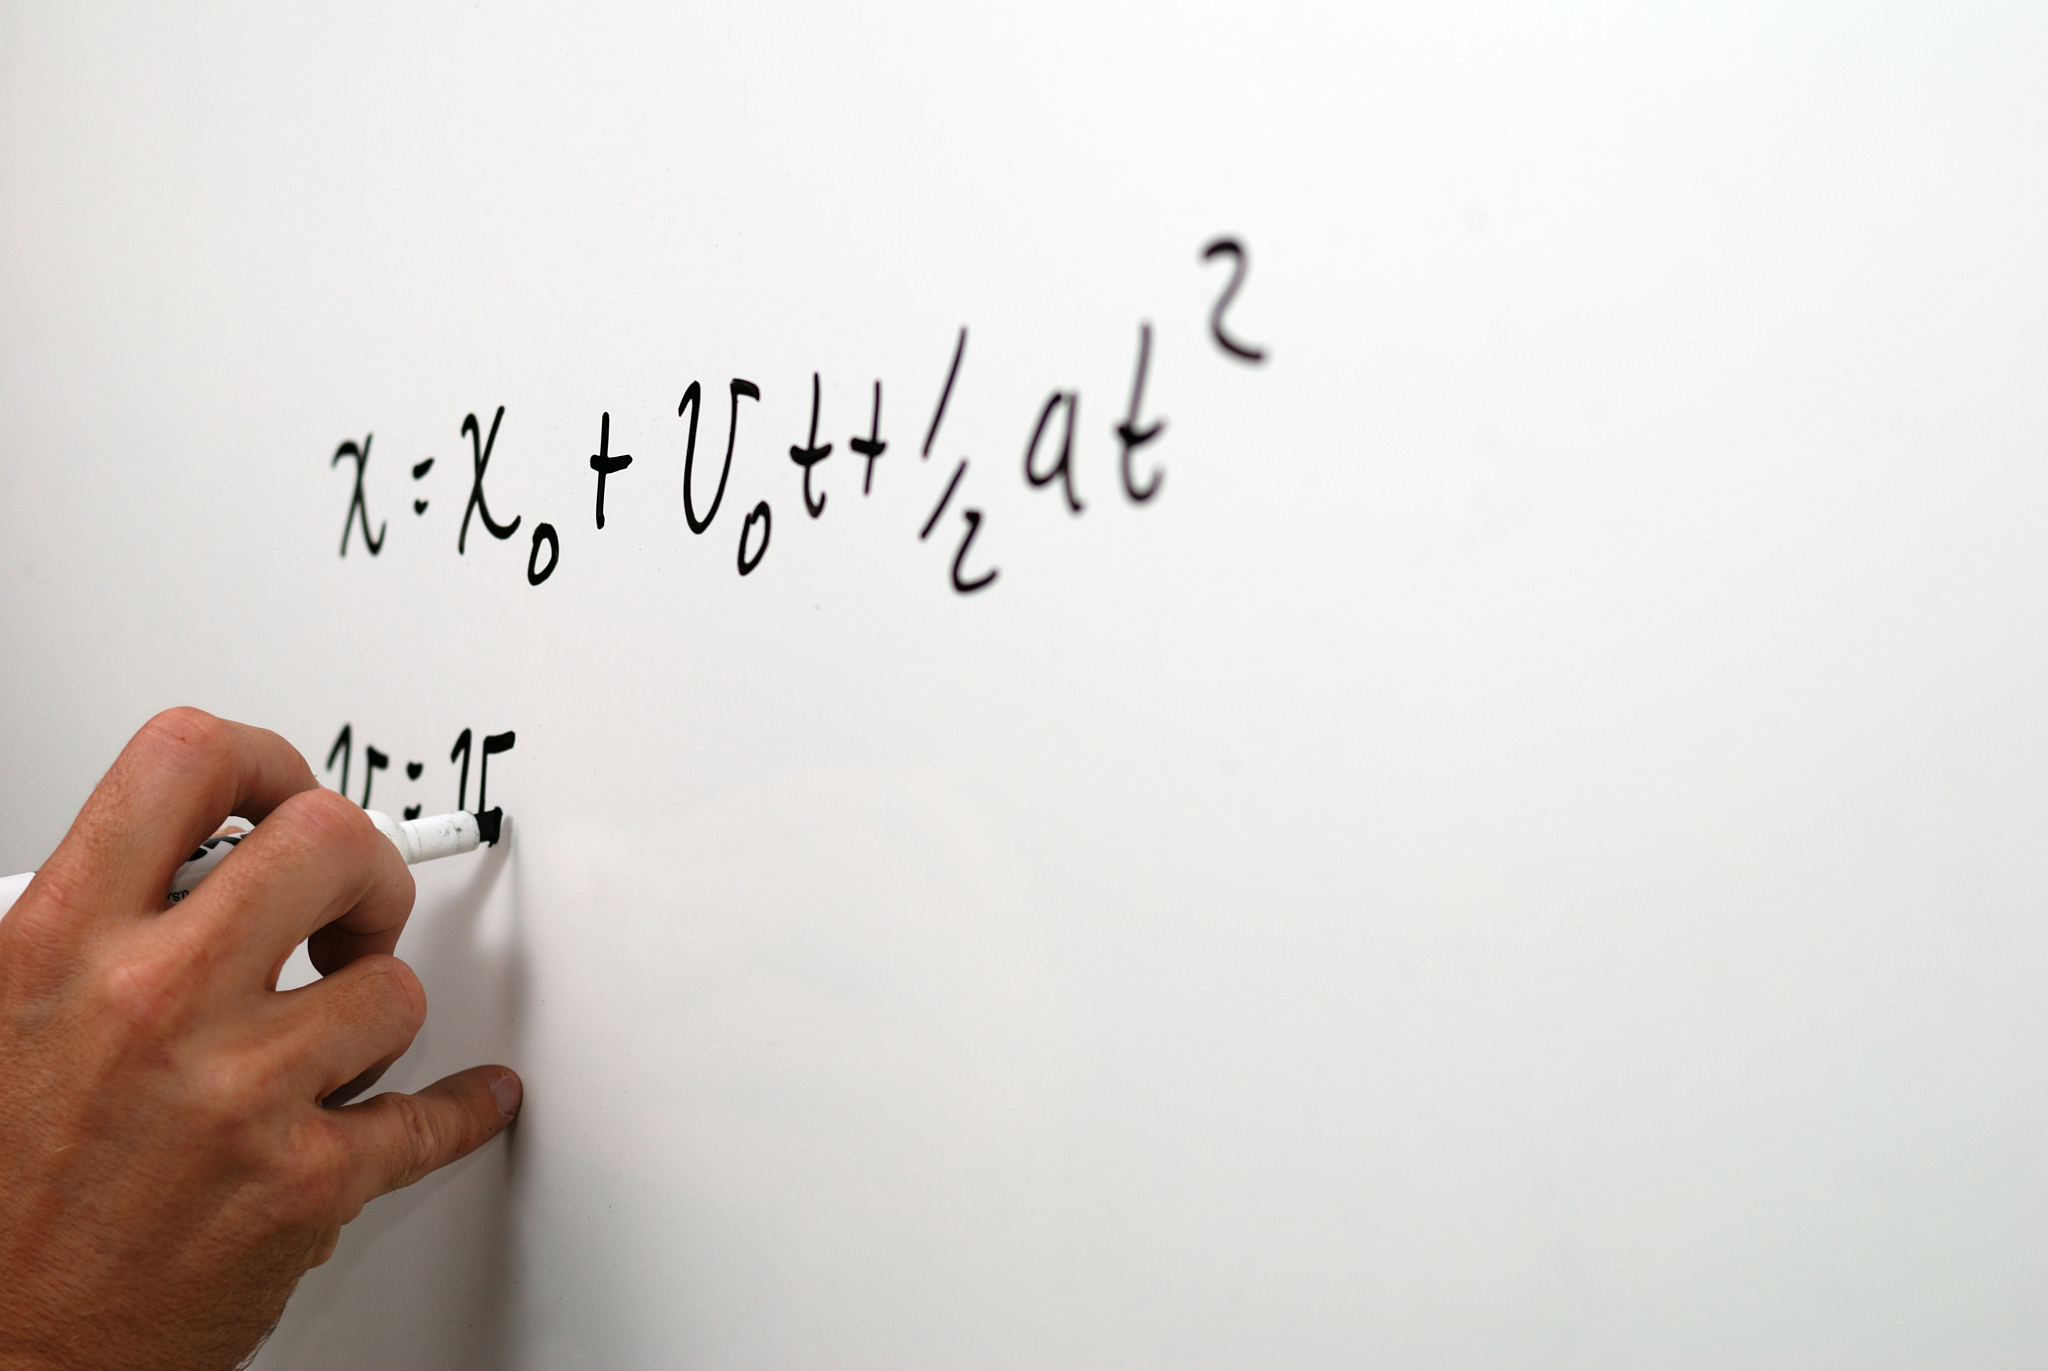 x = x₀ + v₀t + 1/2 at²
v = v